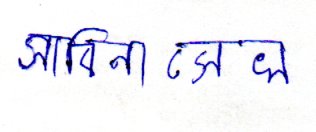 সাবিনা সেখ